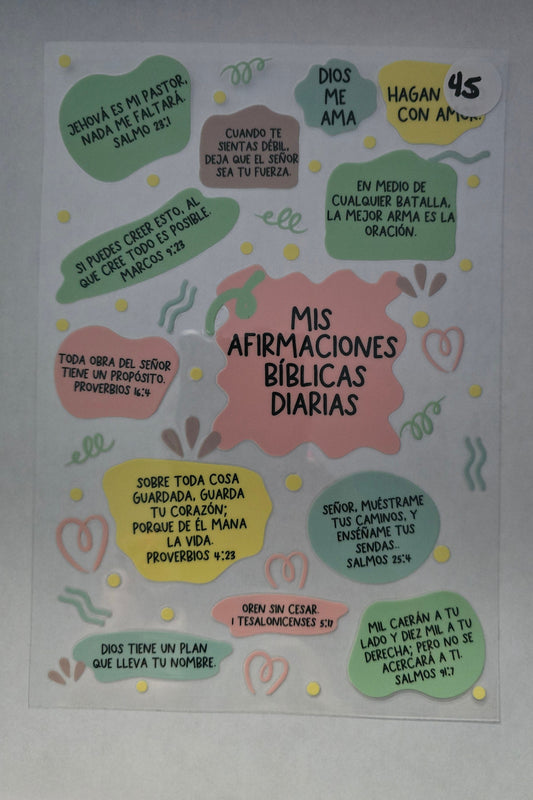 JEHOVÁ ES MI PASTOR,
NADA ME FALTARÁ.
SALMO 23:1
CUANDO TE
SIENTAS DÉBIL,
DEJA QUE EL SEÑOR
SEA TU FUERZA.
DIOS
ME
AMA
HAGAN
CON AMOR.
45
EN MEDIO DE
CUALQUIER BATALLA,
LA MEJOR ARMA ES LA
ORACIÓN.
SI PUEDES CREER ESTO, AL
QUE CREE TODO ES POSIBLE.
MARCOS 9:23
MIS
AFIRMACIONES
BÍBLICAS
DIARIAS
TODA OBRA DEL SEÑOR
TIENE UN PROPÓSITO.
PROVERBIOS 16:4
SOBRE TODA COSA
GUARDADA, GUARDA
TU CORAZÓN;
PORQUE DE ÉL MANA
LA VIDA.
PROVERBIOS 4:23
SEÑOR, MUÉSTRAME
TUS CAMINOS, Y
ENSÉÑAME TUS
SENDAS..
SALMOS 25:4
OREN SIN CESAR.
1 TESALONICENSES 5:17
DIOS TIENE UN PLAN
QUE LLEVA TU NOMBRE.
MIL CAERÁN A TU
LADO Y DIEZ MIL A TU
DERECHA; PERO NO SE
ACERCARÁ A TI.
SALMOS 91:7